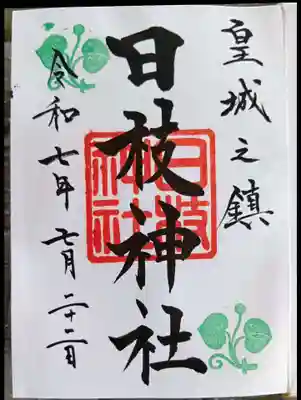 皇城之鎮
日枝神社
日枝
神社
令和七年七月二十二日